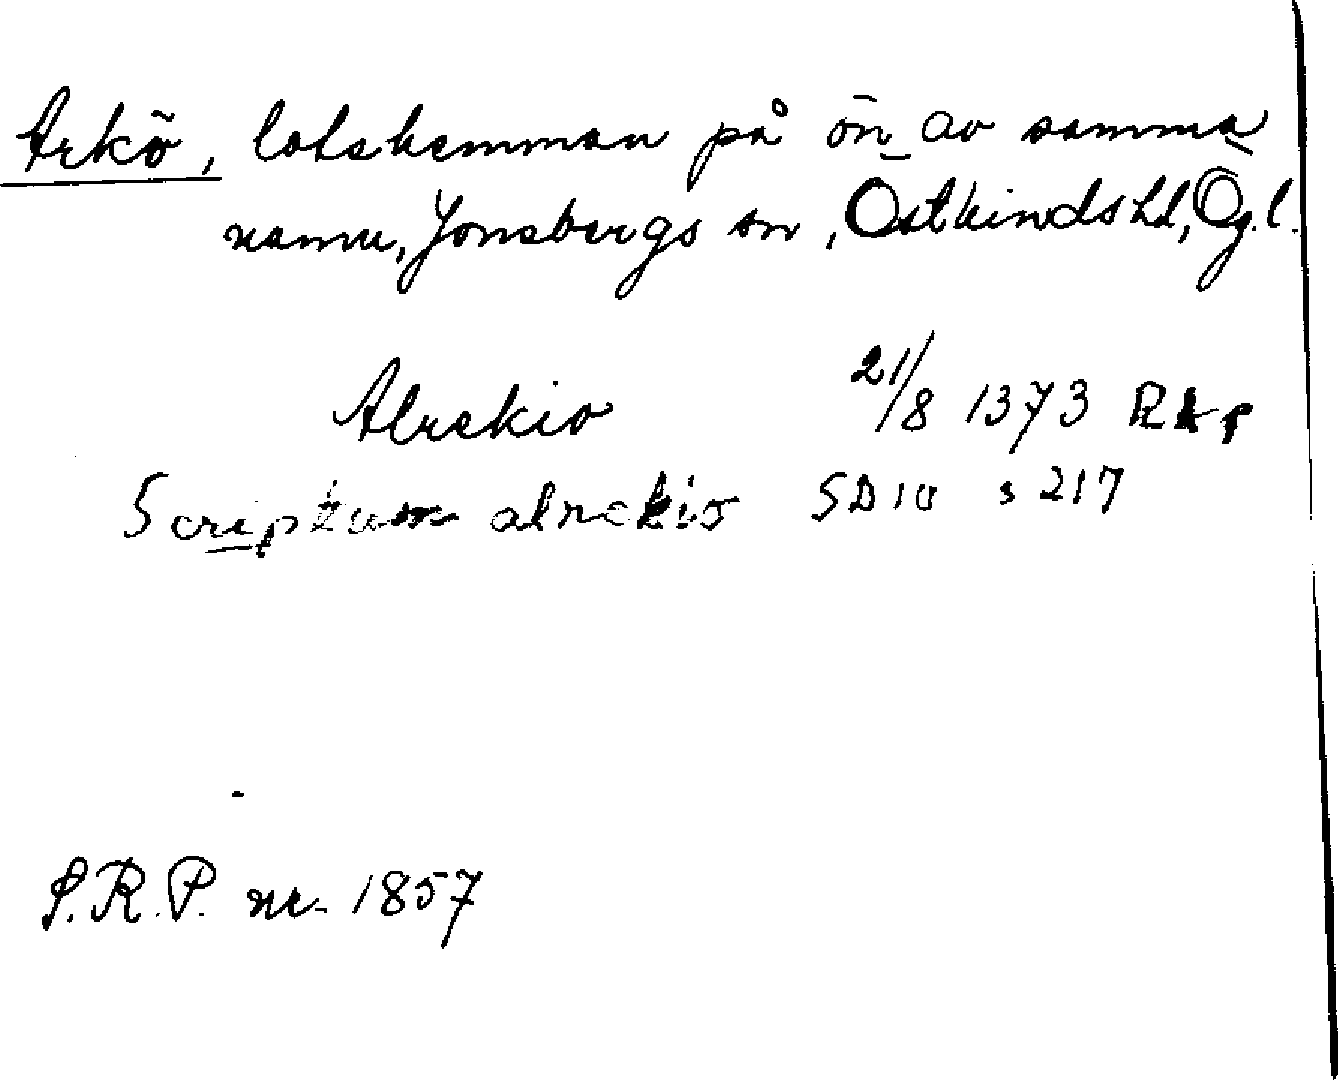 Arkö, lotshemman på ön av samma
namn, Jonsbergs sn, Östkinds hd, Ög.l.
Alrekio 21/8 1373 RAp
Scriptum alrekio SD 10 s 217
S.R.P. nr. 1857